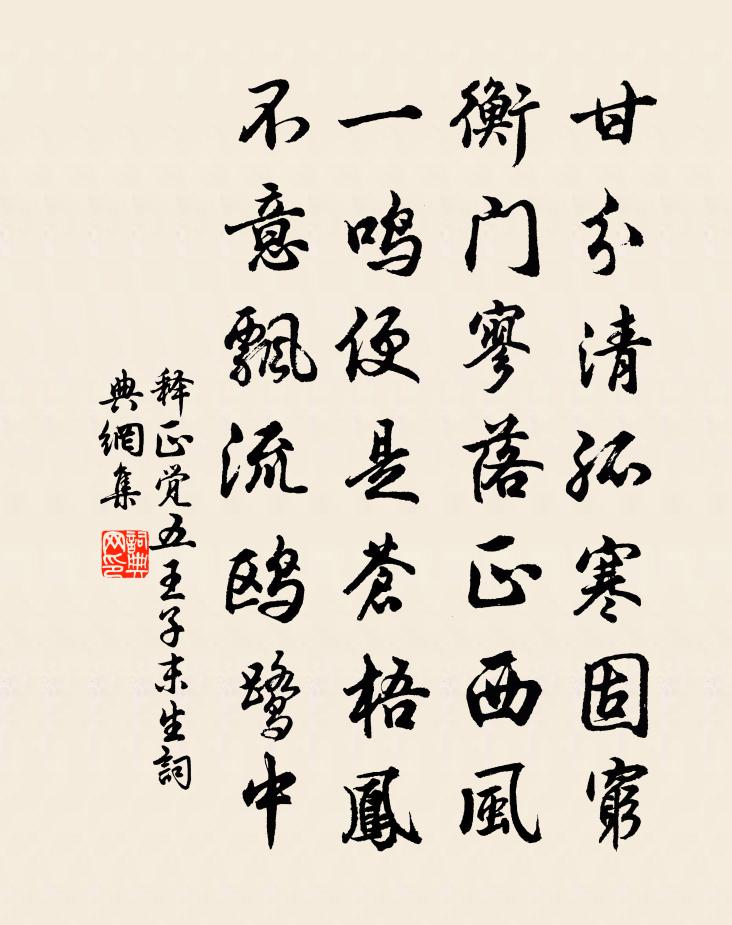 甘分清孤寒固窮
衡门寥落正西風
一鸣便是蒼梧鳳
不意飄流鸥鹭中
释正觉五王子末生詞
典網集
詞典
网印